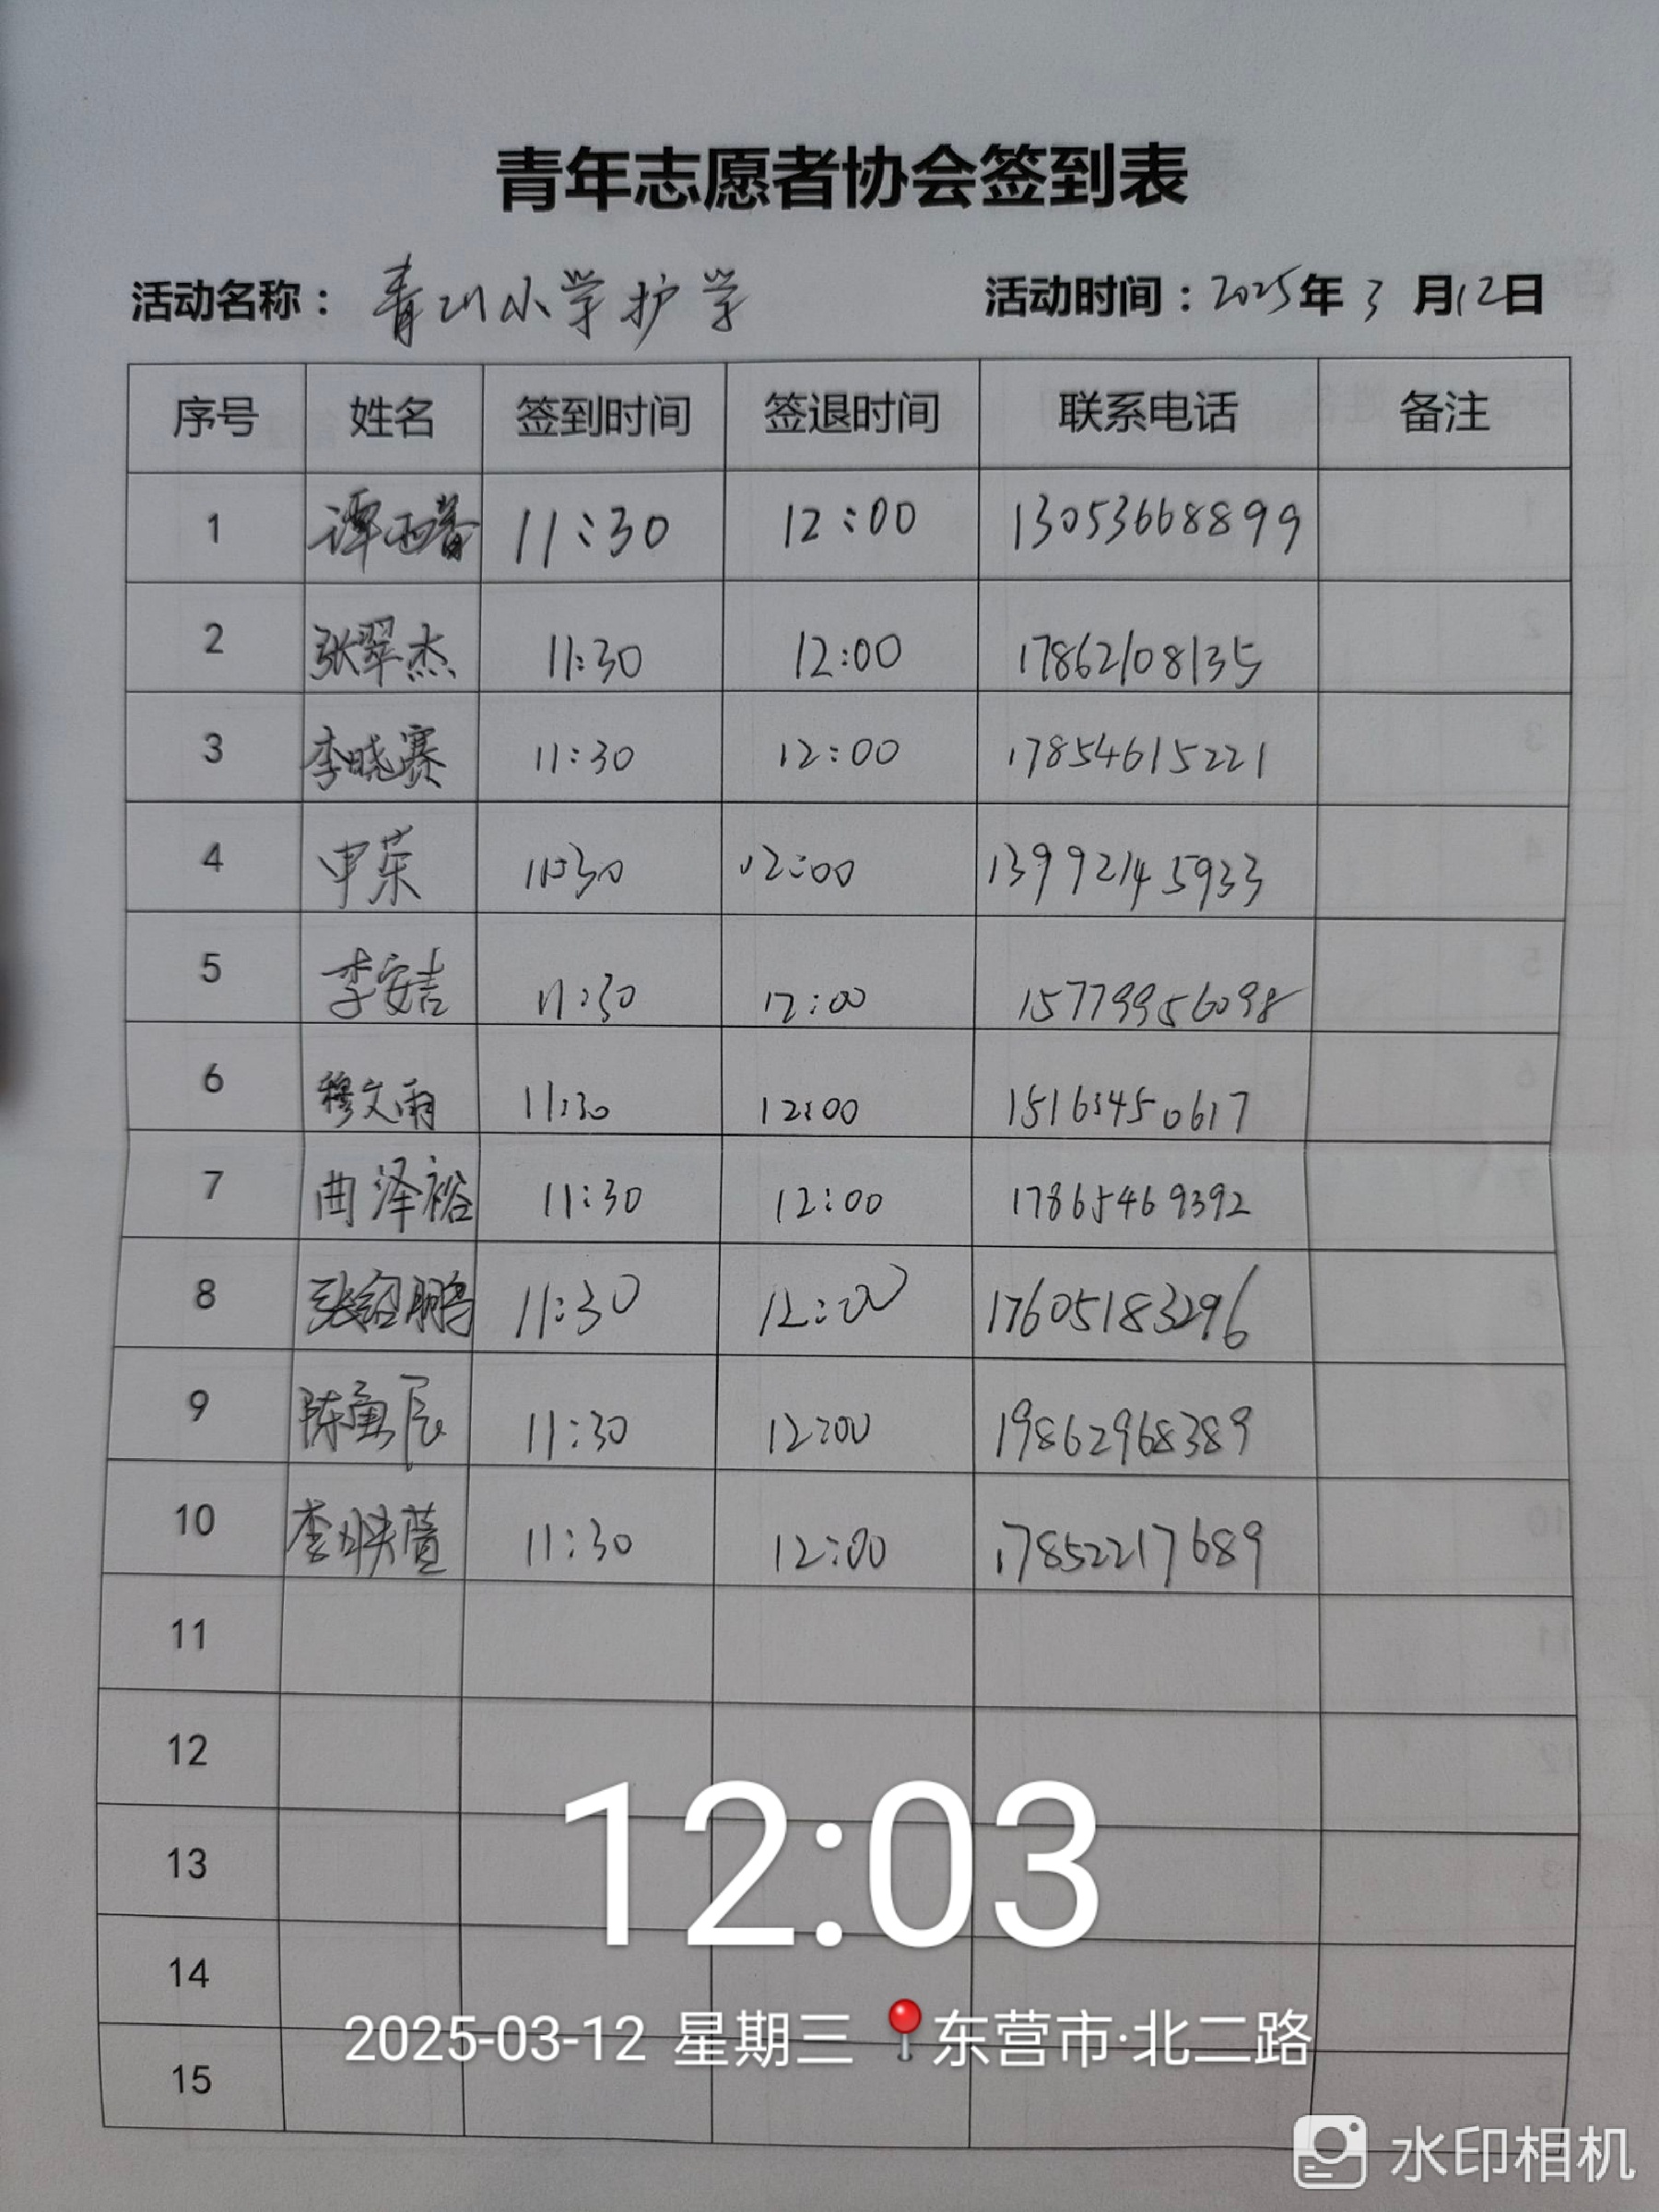 青年志愿者协会签到表
活动名称：青山小学护学 活动时间：2025年3月12日
序号 姓名 签到时间 签退时间 联系电话 备注
1 11:30 12:00 13053668899
2 张翠杰 11:30 12:00 17862108135
3 李晓赛 11:30 12:00 17854615221
4 申荣 11:30 12:00 13992145933
5 李安吉 11:30 12:00 15779956098
6 穆文雨 11:30 12:00
7 曲泽裕 11:30 12:00 17865469392
8 张绍鹏 11:30 12:00 17605183296
9 11:30 12:00 19862968389
10 11:30 12:00 17852217689
11
12
12:03
13
14
2025-03-12 星期三 东营市·北二路
15
水印相机